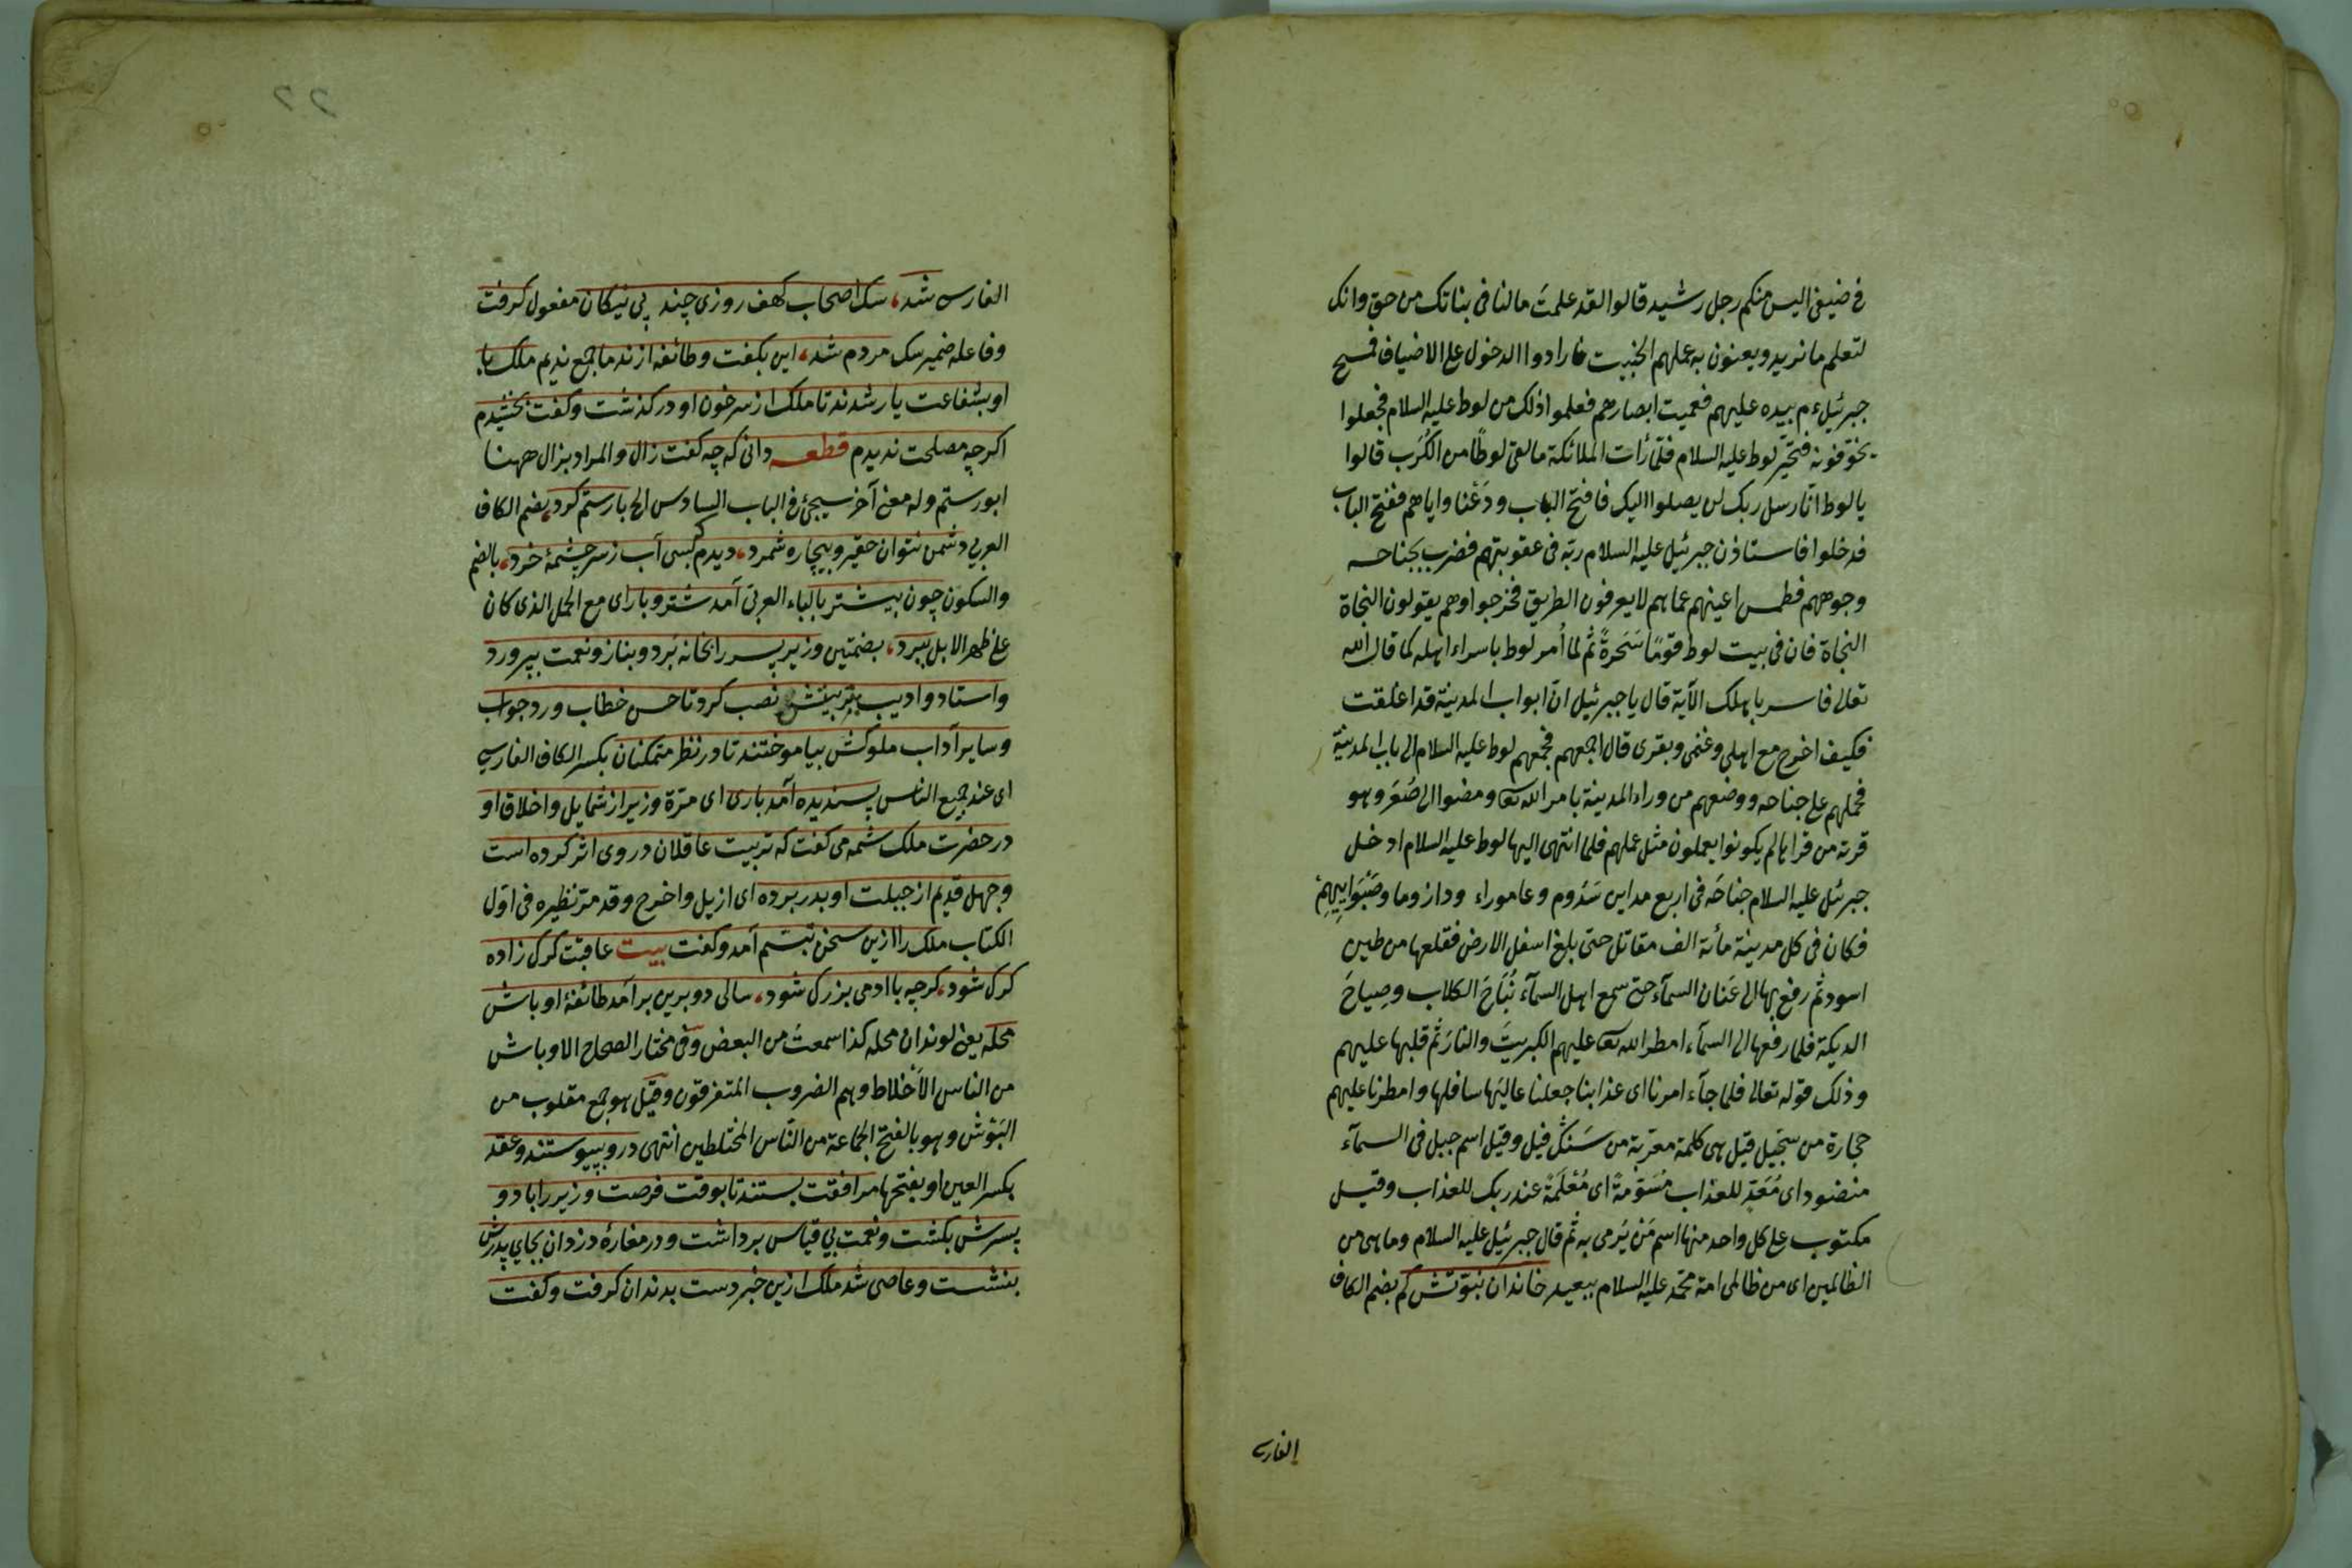 فى ضيفى اليس منكم رجل رشيد قالوا لقد علمتَ مالنا فى بناتك من حق وانك
لتعلم ما نريد ويعنون به عملهم الخبيث فارادوا الدخول على الاضياف فمسح
جبرئيل ءم بيده عليهم فعميت ابصارهم فعلموا ذلك من لوط عليه السلام فجعلوا
يخوّفونه فتحيّر لوط عليه السلام فلمّا رأت الملائكة ما لقى لوطًا من الكُرَب قالوا
يا لوط انّا رسل ربك لن يصلوا اليك فافتح الباب ودَعْنا واياهم ففتح الباب
فدخلوا فاستاذن جبرئيل عليه السلام ربّه فى عقوبتهم فضرب بجناحه
وجوههم فطمس اعينهم عماهم لايعرفون الطريق فخرجوا وهم يقولون النجاة
النجاة فان فى بيت لوط قومًا سَحَرةً ثم لما اُمر لوط باسراء اهله كما قال الله
تعالى فاسر باهلك الآية قال يا جبرئيل انّ ابواب المدينة قد اغلقت
فكيف اخرج مع اهلى وغنمى وبقرى قال اجمعهم فجمعهم لوط عليه السلام الى باب المدينة
فحملهم على جناحه ووضعهم من وراء المدينة بامر الله تعا ومضوا الى صُعَر وهو
قرية من قراها لم يكونوا يعملون مثل عملهم فلما انتهى اليها لوط عليه السلام ادخل
جبرئل عليه السلام جناحَه فى اربع مداين سَدُوم وعاموراء ودازوما وصَبْوَايِيهِمْ
فكان فى كل مدينة مأئة الف مقاتل حتى بلغ اسفل الارض فقلعها من طين
اسود ثم رفع بها الى عَنان السمآء حتى سمع اهل السمآء نُبَاحَ الكلاب وصِياحَ
الديكة فلما رفعها الى السمآء امطر الله تعا عليهم الكبريتَ والنارَ ثم قلبها عليهم
وذلك قوله تعالى فلما جآء امرنا اى عذابنا جعلنا عاليَها سافلها وامطرنا عليهم
حجارة من سجّيل قيل هى كلمة معرّبة من سَنگ فيل وقيل اسم جبل فى السمآء
منضود اى مُعَدّ للعذاب مُسَوّمةً اى مُعْلَمَةً عند ربك للعذاب وقيل
مكتوب على كل واحد منها اسم مَنْ يَرمى به ثم قال جبرئيل عليه السلام وما هى من
الظالمين اى من ظالمى امة محمّد عليه السلام ببعيد خاندان نبوّتش كم بضم الكاف
الفارسى
الفارس شد، سك اصحاب كهف روزى چند پى نيكان مفعول كرفت
وفاعله ضمير سك مردم شد، اين بكفت وطائفه از ندما جمع نديم ملك با
او بشفاعت يار شدند تا ملك از سر خون او دركذشت وكفت بخشيدم
اكرچه مصلحت نديدم قطعه دانى كه چه كفت زال والمراد بزال ههنا
ابو رستم وله معنى آخر سيجئ فى الباب السادس الخ بارستم كرد، بضم الكاف
العربى دشمن نتوان حقير وبيچاره شمرد، ديدم كه بسى آب ز سر چشمهٔ خرد، بالضم
والسكون چون بيشتر بالباء العربى آمد شتر وبار اى مع الحمل الذى كان
على ظهر الابل ببرد، بضمتين وزير پسر را بخانه بَرد وبناز ونعمت بپرورد
واستاد واديب بتربيتش نصب كرد تا حسن خطاب ورد جواب
وساير آداب ملوكش بياموختند تا در نظر متمكنان بكسر الكاف الفارسى
اى عند جميع الناس پسنديده آمد بارى اى مرّة وزير از شمايل واخلاق او
در حضرت ملك شمه مى كفت كه تربيت عاقلان در وى اثر كرده است
وجهل قديم از جبلت او بدر برده اى ازيل واخرج وقد مرّ نظيره فى اوّل
الكتاب ملك را ازين سخن تبسّم آمد وكفت بيت عاقبت كرك زاده
كرك شود، كرچه با ادمى بزرك شود، سالى دو برين برآمد طائفهٔ اوباش
محله يعنى لوندان محله كذا سمعت من البعض وفى مختار الصحاح الاوباش
من الناس الاَخْلاط وهم الضروب المتفرقون وقيل هو جمع مقلوب من
البَوْش وهو بالفتح الجماعة من النّاس المختلطين انتهى درو پيوستند وعقد
بكسر العين او بفتحها مرافقت بستند تا بوقت فرصت وزير را با دو
پسرش بكشت ونعمت بى قياس برداشت ودر مغارهٔ دزدان بجاى پدرش
بنشست وعاصى شد ملك ازين خبر دست بدندان كرفت وكفت